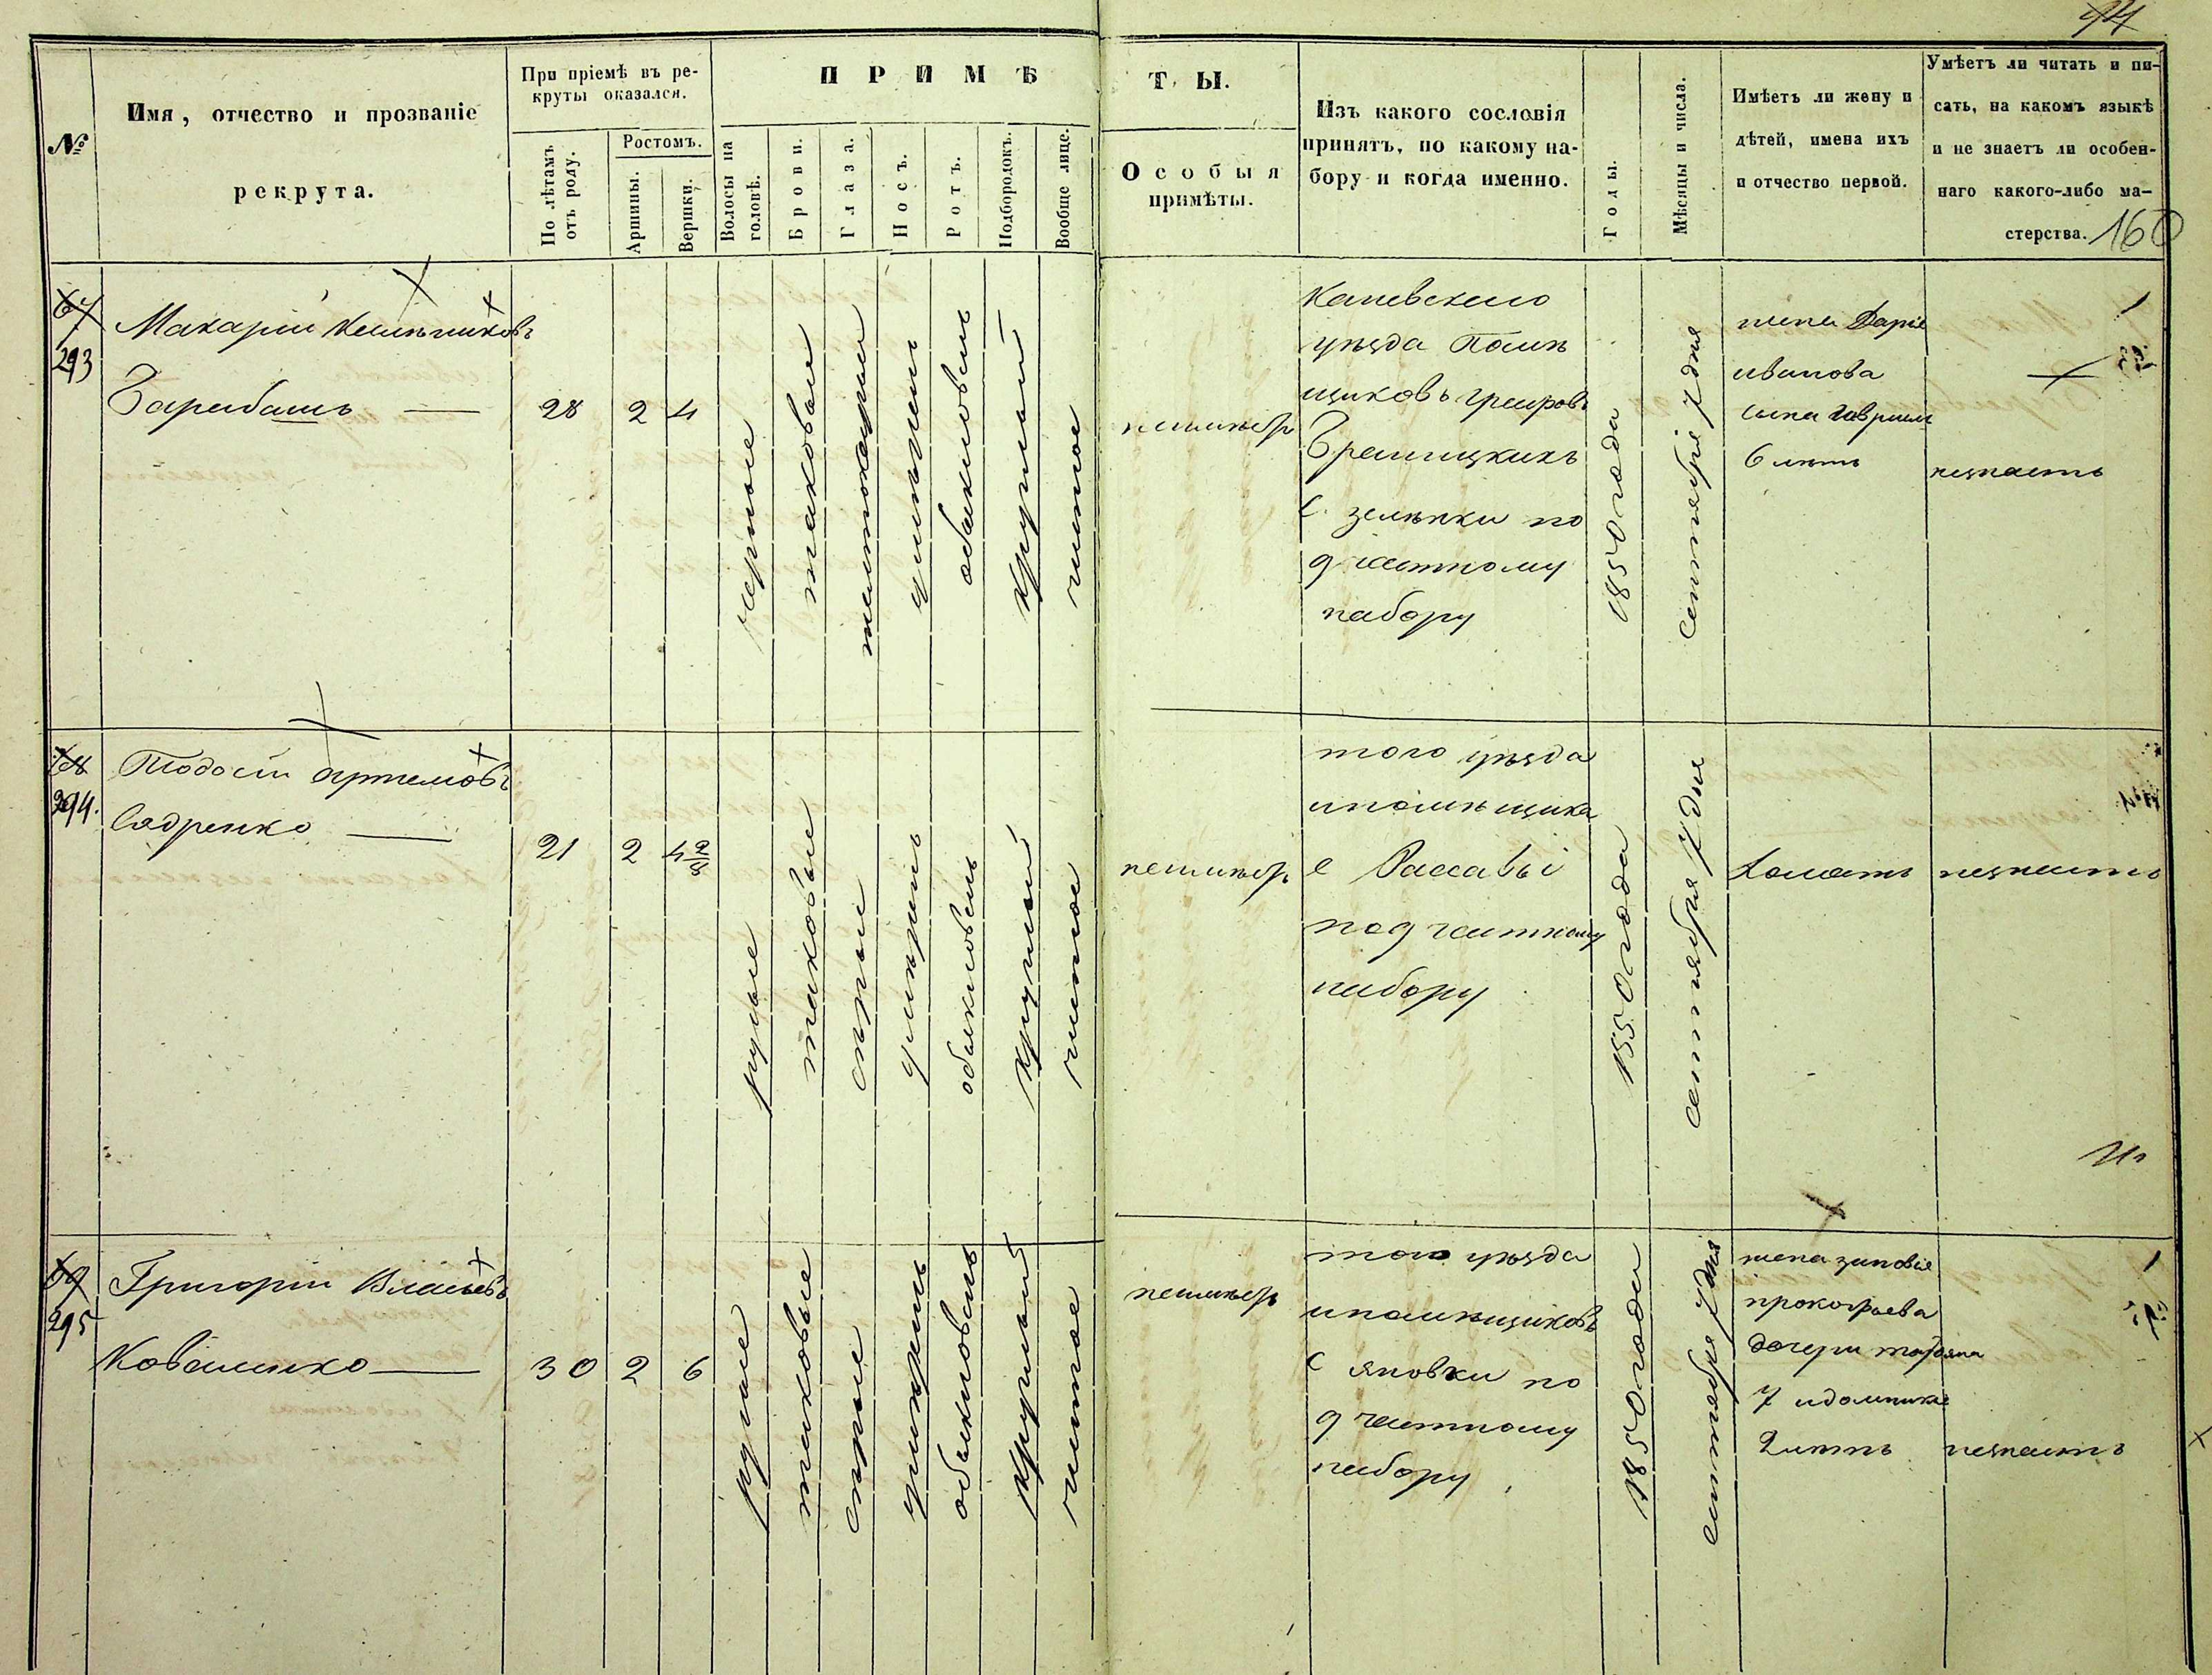 94
№
Имя, отчество и прозваніе
рекрута.
При пріемѣ въ ре-
круты оказался.
По лѣтамъ
отъ роду.
Ростомъ.
Аршины.
Вершки.
ПРИМѢ
Волосы на
головѣ.
Брови.
Глаза.
Носъ.
Ротъ.
Подбородокъ.
Вообще лице.
ТЫ.
Особыя
примѣты.
Изъ какого сословія
принятъ, по какому на-
бору и когда именно.
Годы.
Мѣсяцы и числа.
Имѣетъ ли жену и
дѣтей, имена ихъ
и отчество первой.
Умѣетъ ли читать и пи-
сать, на какомъ языкѣ
и не знаетъ ли особен-
наго какого-либо ма-
стерства.
160
67
293
Макарій
28
2
4
черные
таковыи
круглый
чистое
неимѣетъ
Каневскаго
уѣзда Помѣ
щиковъ графовъ
Браницкихъ
с. зеленки по
9 частному
набору
1850 года
сентября 7 дня
жена Дарія
иванова
сына гавриила
6 лѣтъ
незнаетъ
68
294.
Тодосій артемовъ
Сидренко
21
2
4 2/8
русые
таковые
сѣрые
умѣренъ
обыкновенъ
круглый
чистое
неимѣетъ
того уѣзда
и помѣщика
с Рассавы
по 9 частному
набору
1850 года
сентября 7 дня
Холостъ
незнаетъ
69
295
Григорій Власьевъ
Коваленко
30
2
6
русые
таковые
сѣрые
умѣренъ
обыкновенъ
круглый
чистое
неимѣетъ
того уѣзда
и помѣщиковъ
с яновки по
9 частному
набору
1850 года
сентября 7 дня
жена зиновія
прокофіева
дочери
7 и доминика
2 лѣтъ
незнаетъ